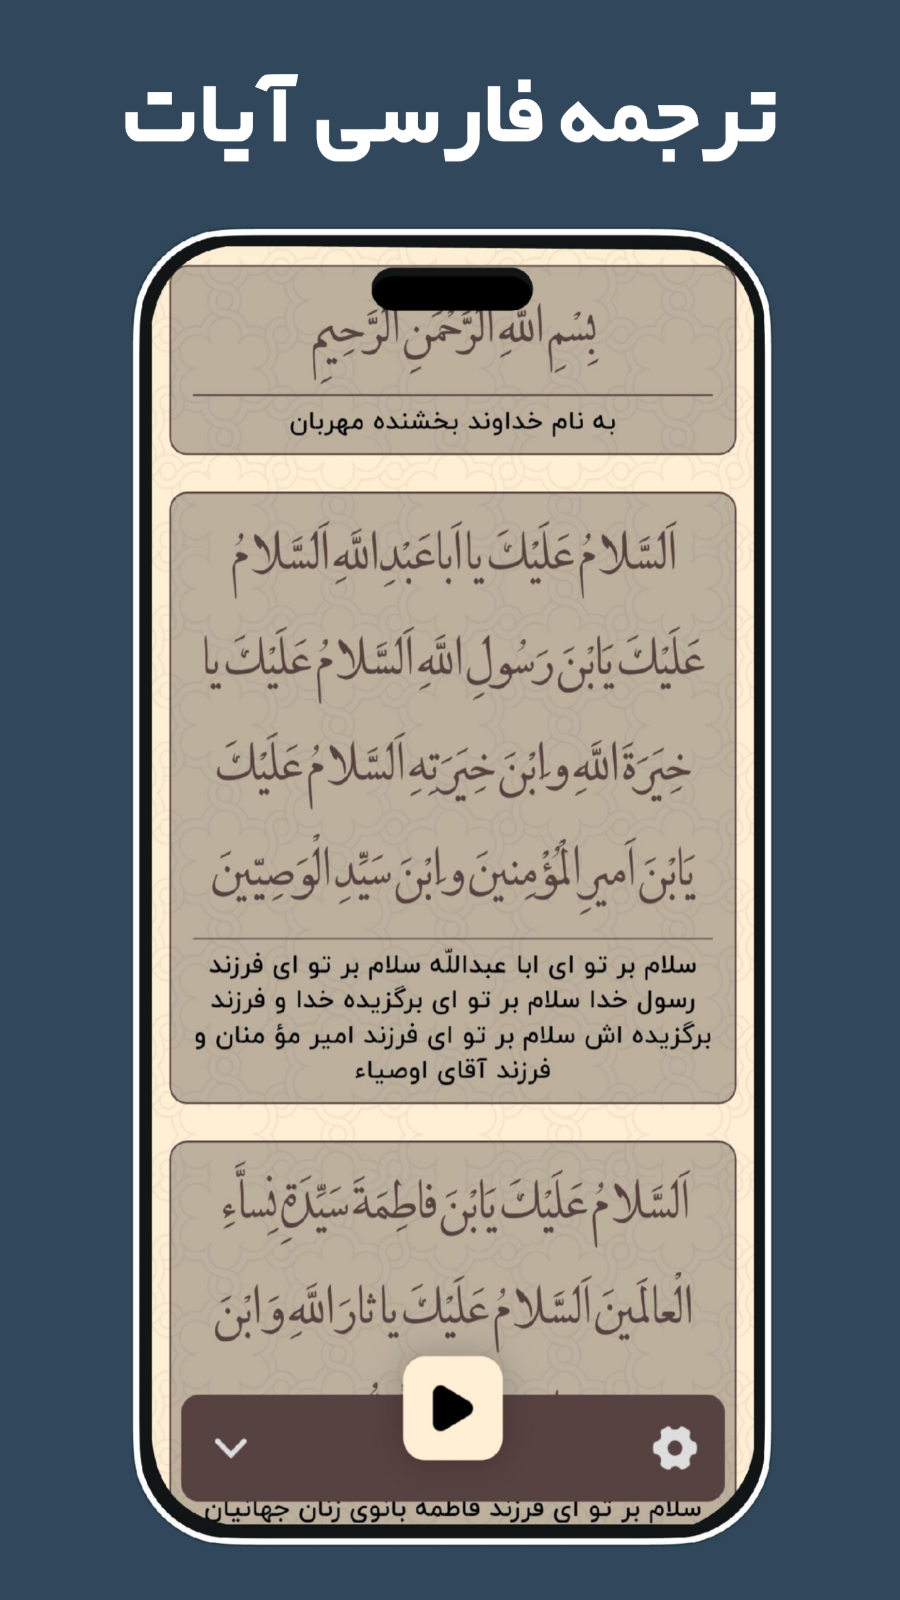 ترجمه فارسی آیات
بِسْمِ اللَّهِ الرَّحْمَنِ الرَّحِيمِ
به نام خداوند بخشنده مهربان
اَلسَّلامُ عَلَيْكَ يا اَبا عَبْدِاللَّهِ اَلسَّلامُ
عَلَيْكَ يَابْنَ رَسُولِ اللَّهِ اَلسَّلامُ عَلَيْكَ يا
خِيَرَةَ اللَّهِ وابْنَ خِيَرَتِهِ اَلسَّلامُ عَلَيْكَ
يَابْنَ اَميرِ الْمُؤْمِنينَ وابْنَ سَيِّدِ الْوَصِيّينَ
سلام بر تو ای ابا عبداللّه سلام بر تو ای فرزند
رسول خدا سلام بر تو ای برگزیده خدا و فرزند
برگزیده اش سلام بر تو ای فرزند امیر مؤ منان و
فرزند آقای اوصیاء
اَلسَّلامُ عَلَيْكَ يَابْنَ فاطِمَةَ سَيِّدَةِ نِساَّءِ
الْعالَمينَ اَلسَّلامُ عَلَيْكَ يا ثارَ اللَّهِ وَابْنَ
سلام بر تو ای فرزند فاطمه بانوی زنان جهانیان